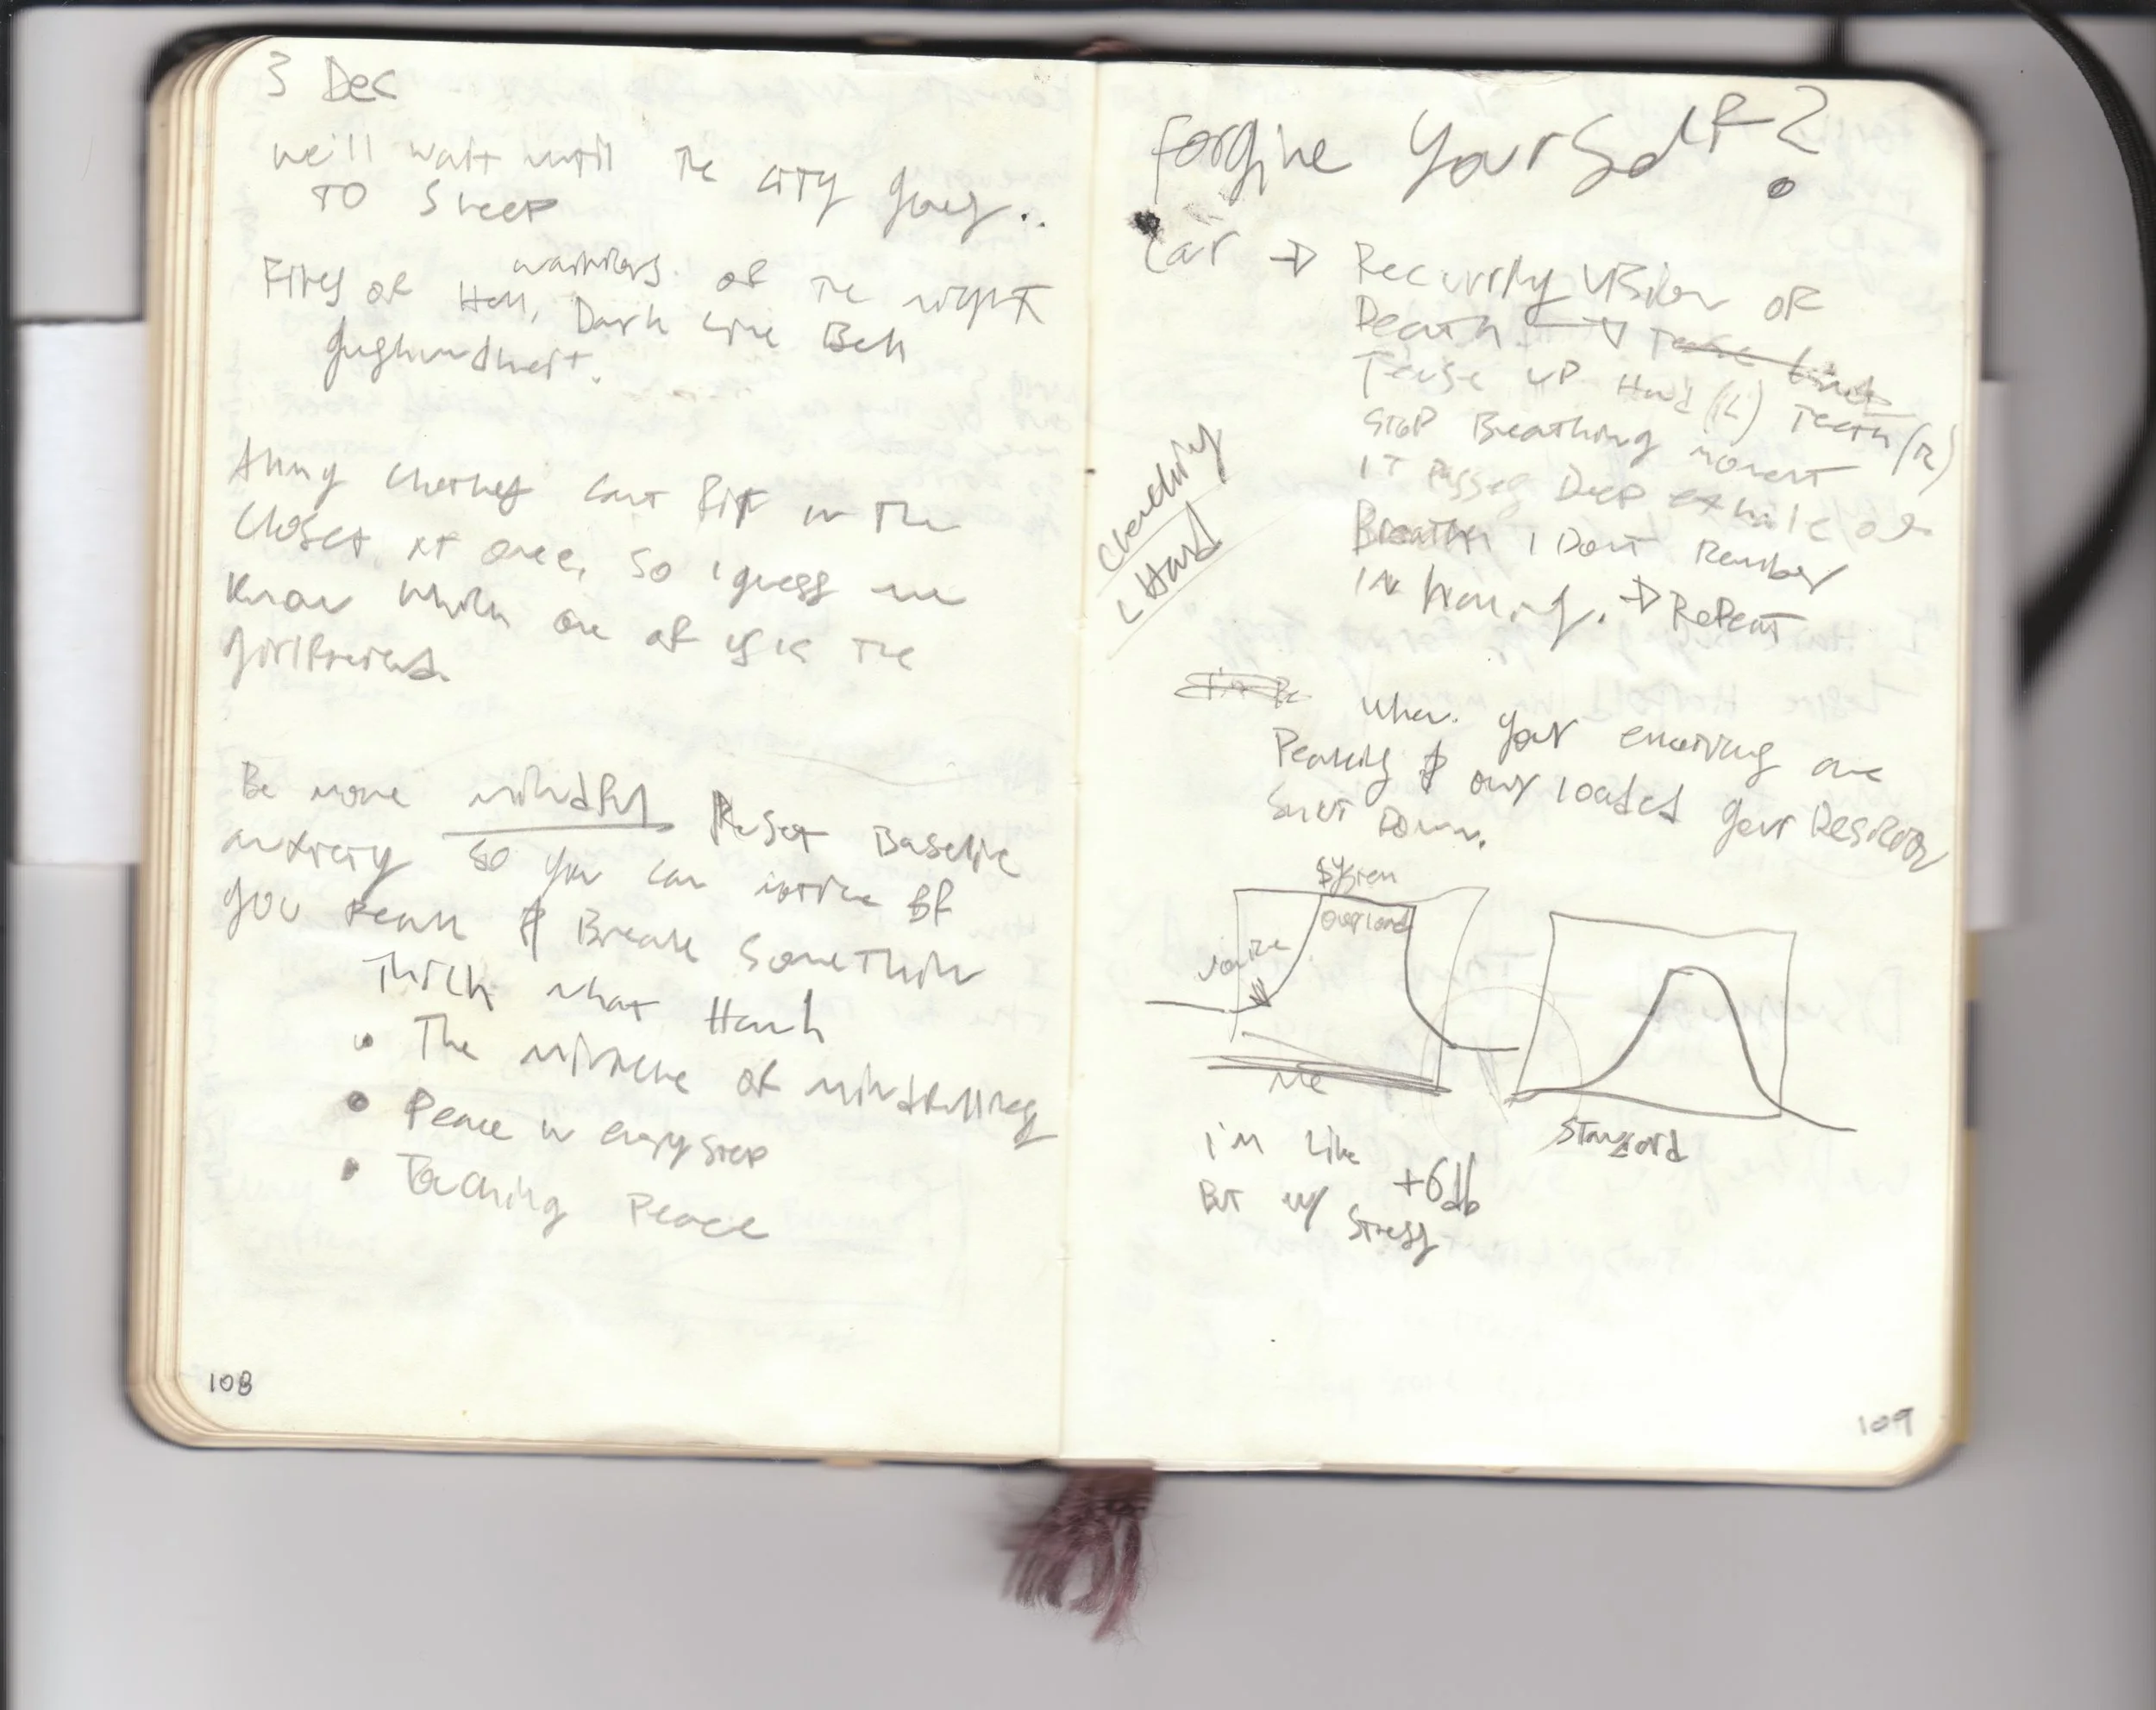 3 Dec
we'll wait until the city goes..
TO Sleep
warriors of the night
Fires of Hell, Dark like Bell
Anny clothes cant Fit in the
closet at once, so I guess we
know which one of us is the
girlfriend.
Be more mindful Reset Baseline
anxiety so you can notice BF
you Peak & Break Somethin
Thich nhat Hanh
The miracle of mindfullness
Peace in every step
Teaching Peace
108
Forgive Yourself?
Car → Recurring Vision of
Death →
Tense up Hand (L) Teeth (R)
Stop Breathing moment
IT Passes Deep exhale/
Breath I Dont Remember
→ Repeat
Clenching
L Hand
when your emotions are
Peaking & overloaded your
Shut Down.
System
overload
Me
Standard
I'm like +6db
But w/ Stress
109